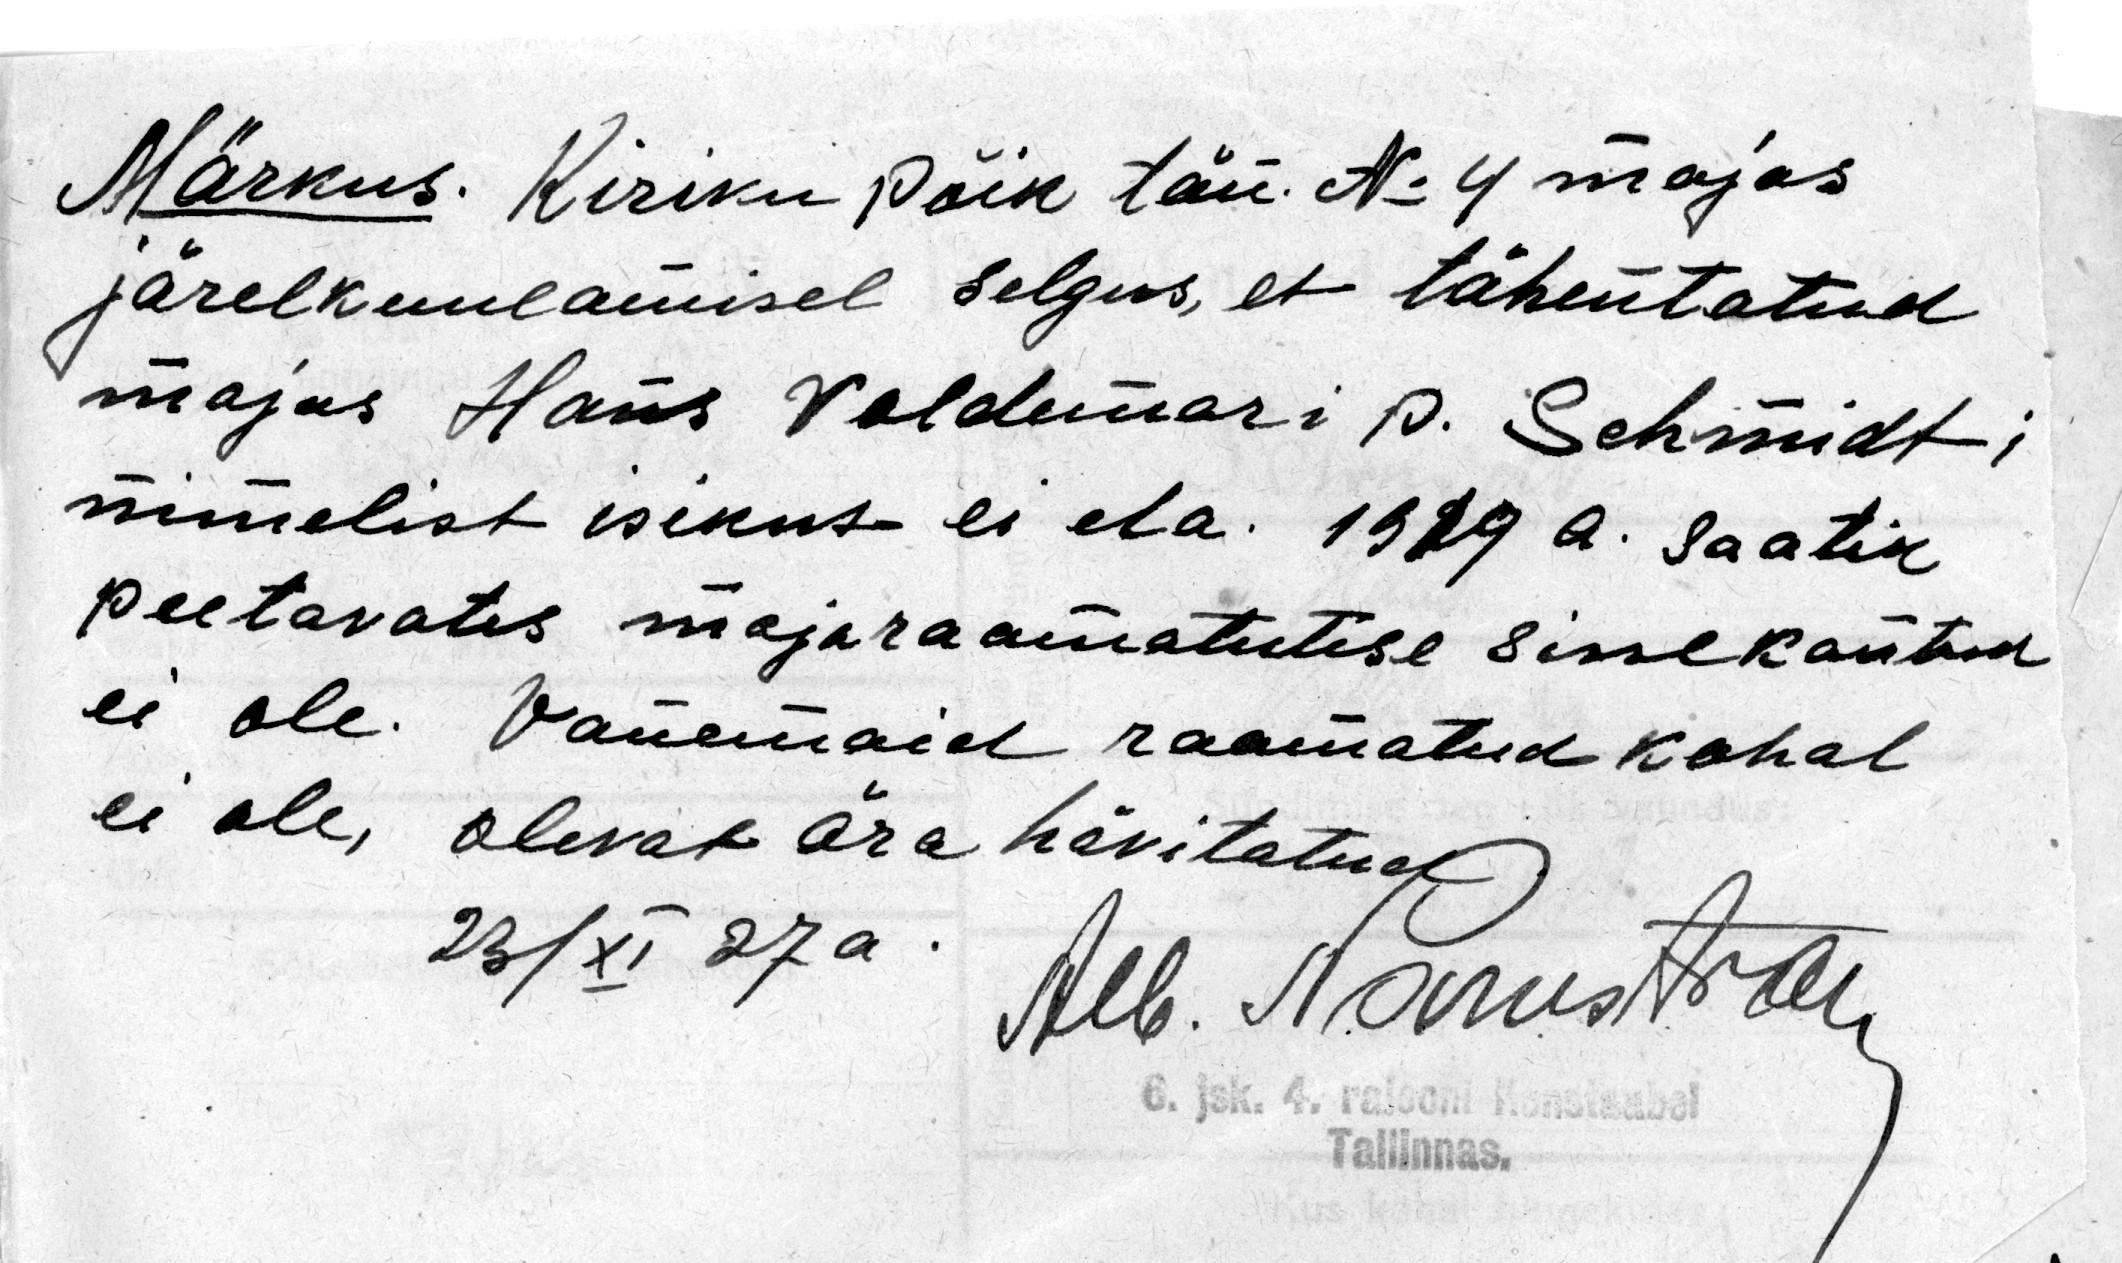 Märkus. Kiriku põik tän. № 4 majas
järelkuulamisel selgus, et tähentatud
majas Hans Voldemari p. Schmidt i
nimelist isikut ei ela. 1919 a. saatik
peetavates majaraamatutese sissekantud
ei ole. Vanemaid raamatud kohal
ei ole, olevat ära hävitatud
23/XI 27 a.
Alb.
6. jsk. 4. rajooni Konstaabel
Tallinnas.